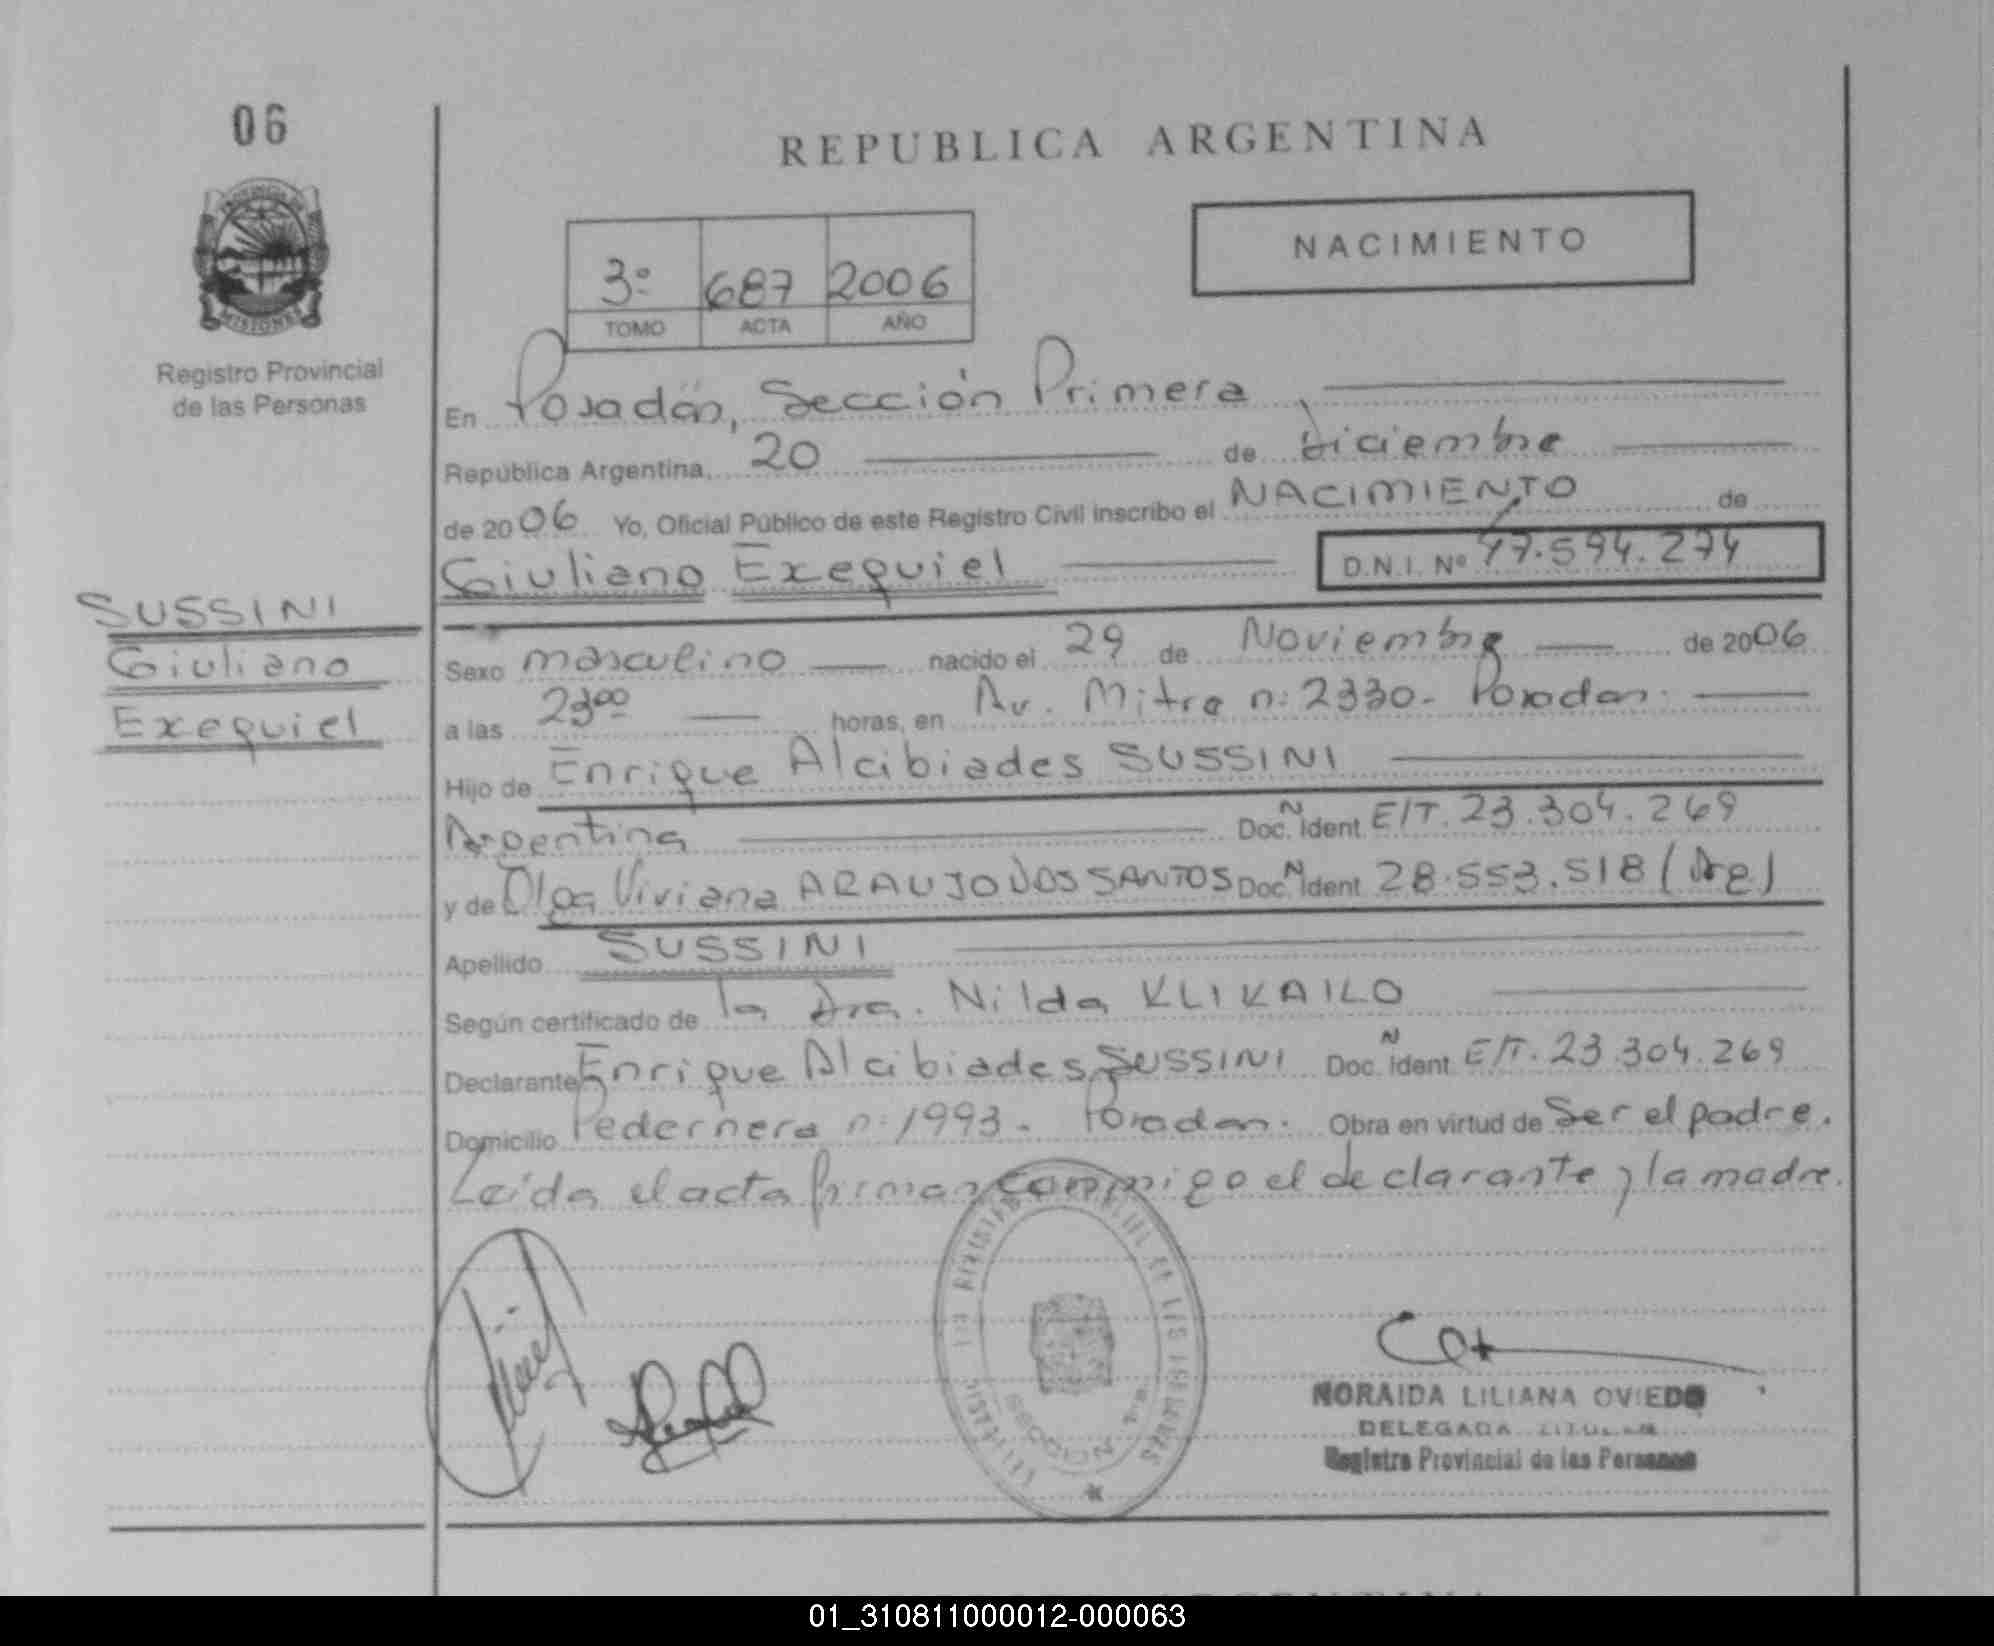 06
REPUBLICA ARGENTINA
NACIMIENTO
3º 687 2006
TOMO ACTA AÑO
PROVINCIA DE
MISIONES
Registro Provincial
de las Personas
En Posadas, Sección Primera
República Argentina, 20 de diciembre
de 2006 Yo, Oficial Público de este Registro Civil inscribo el NACIMIENTO de
Giuliano Exequiel D.N.I. Nº 47.594.274
SUSSINI
Giuliano
Exequiel
Sexo masculino nacido el 29 de Noviembre de 2006
a las 23⁰⁰ horas, en Av. Mitre n: 2330- Posadas.
Hijo de Enrique Alcibiades SUSSINI
Argentina Doc. N Ident E/T. 23.304.269
y de Olga Viviana ARAUJO DOS SANTOS Doc. N Ident 28.553.518 (Arg)
Apellido SUSSINI
Según certificado de la Dra. Nilda KLIKAILO
Declarante Enrique Alcibiades SUSSINI Doc. N Ident E/T. 23.304.269
Domicilio Pedernera n: 1993. Posadas. Obra en virtud de Ser el padre.
Leída el acta firman conmigo el declarante y la madre.
SECCION 1ra
NORAIDA LILIANA OVIEDO
DELEGADA TITULAR
Registro Provincial de las Personas
01_310811000012-000063